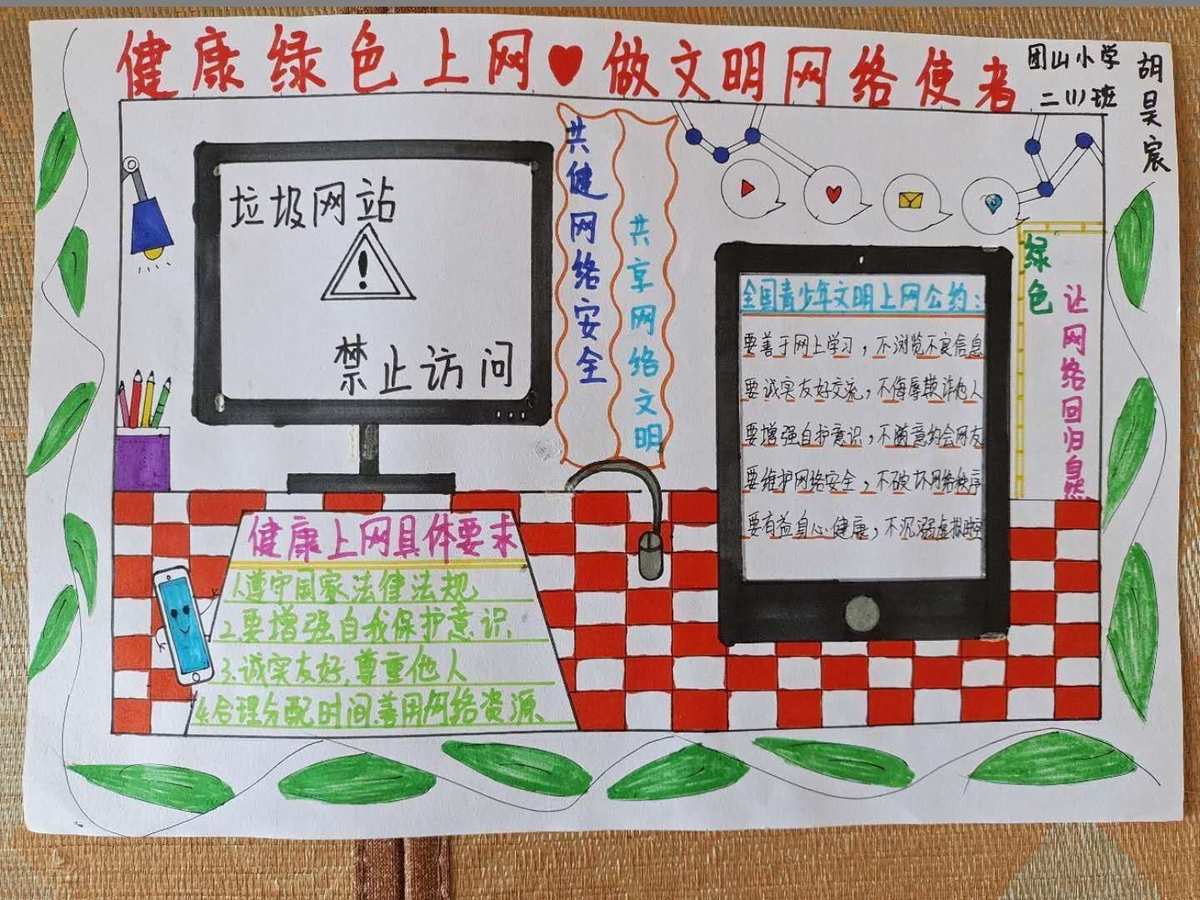 健康绿色上网❤做文明网络使者
团山小学
二(1)班
胡昊宸
垃圾网站
!
禁止访问
共健网络安全
共享网络文明
全国青少年文明上网公约:
要善于网上学习,不浏览不良信息
要诚实友好交流,不侮辱欺诈他人
要增强自护意识,不随意约会网友
要维护网络安全,不破坏网络秩序
要有益身心健康,不沉溺虚拟时空
绿色
让网络回归自然
健康上网具体要求
1.遵守国家法律法规
2.要增强自我保护意识、
3.诚实友好,尊重他人
4.合理分配时间善用网络资源、